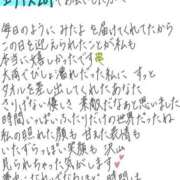 毎日のように みたよ を届けてくれてたから
この日を迎えられたことが 私も
本当に 嬉しかったです
大雨でびしょ濡れだった私に すっと
タオルを差し出してくれたあなた
さりげない優しさ 素敵だなぁと思いました
時間いっぱいふたりだけの世界だったね
私の照れた顔も 甘えた表情も
いたずらっぽい笑顔も 沢山
見られちゃった気がします